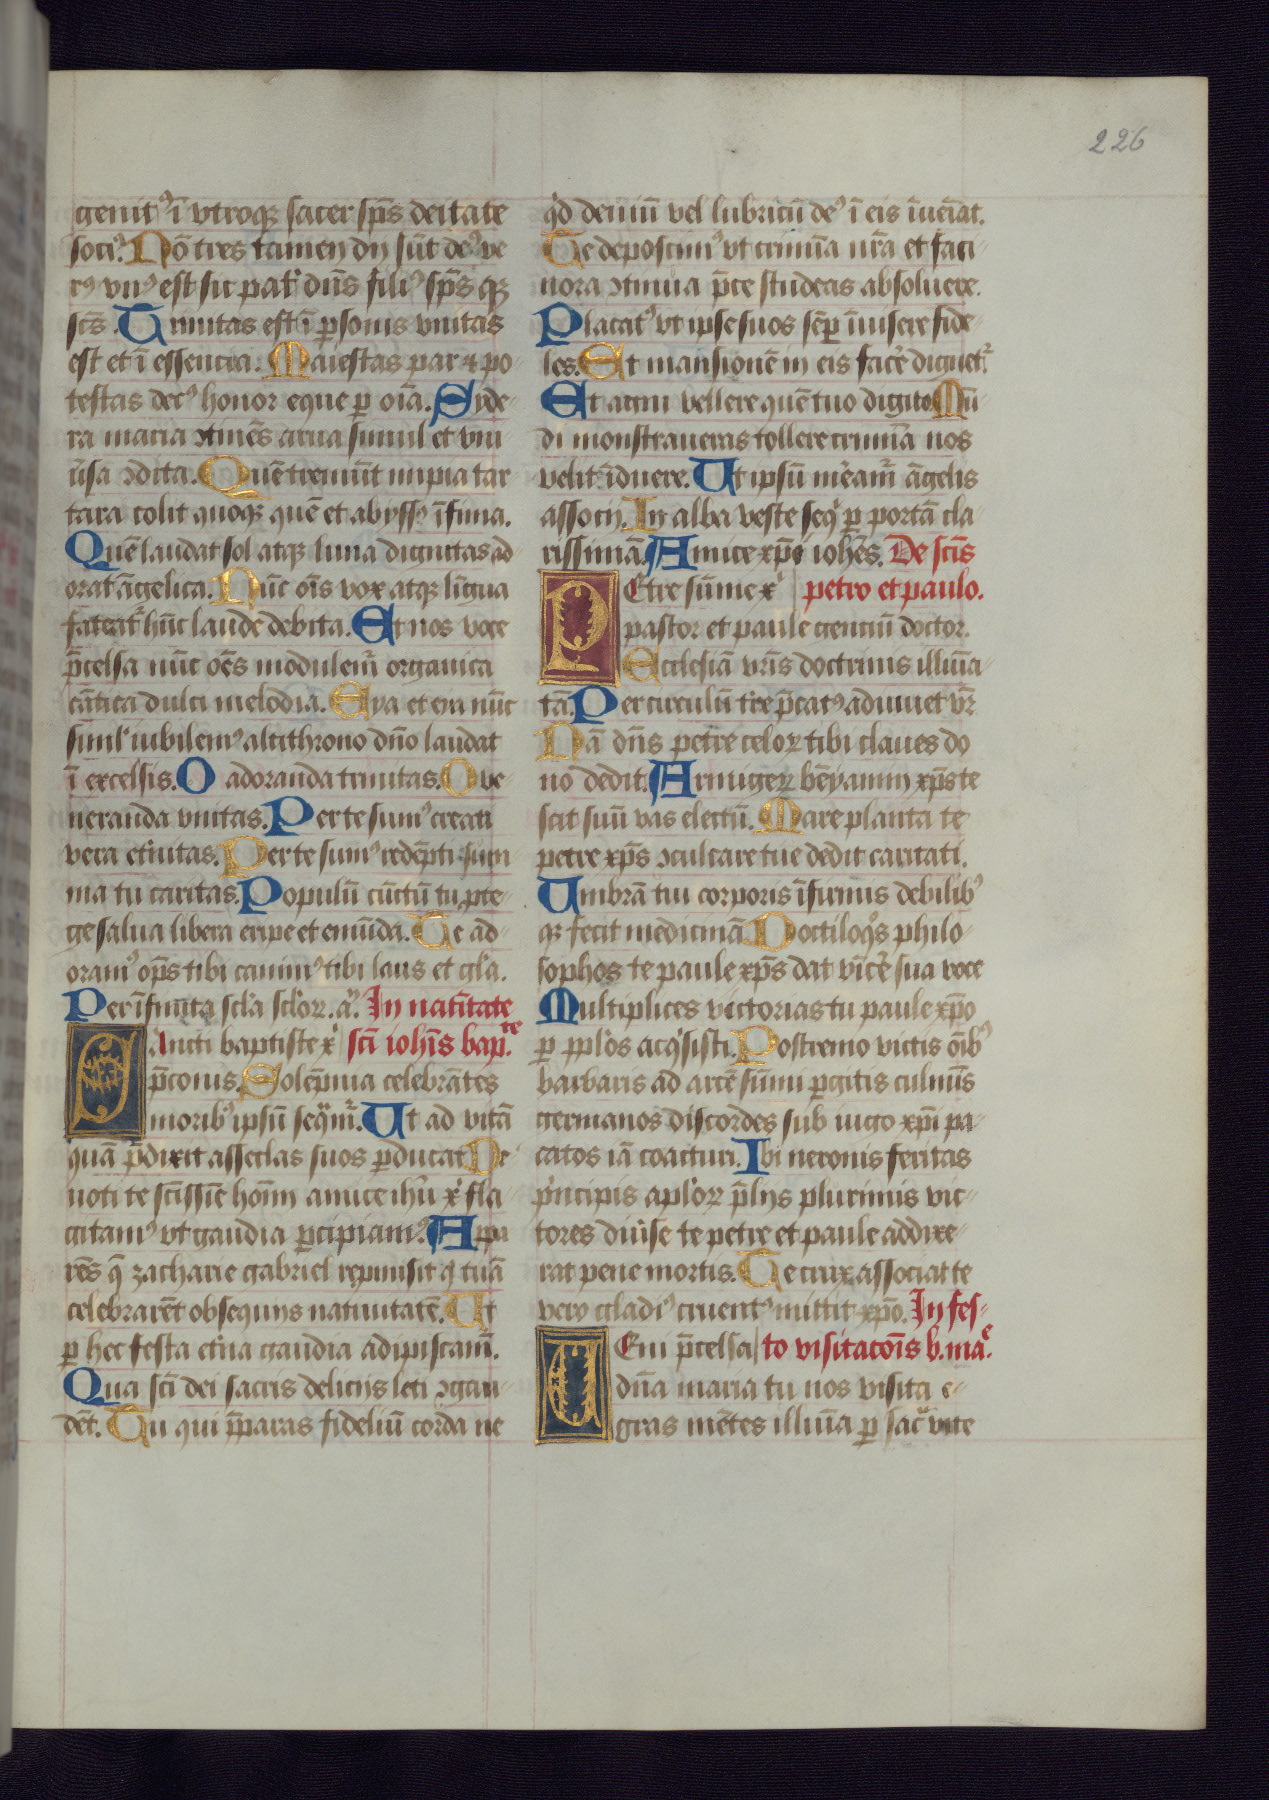 226
genit⁹ ī vtroq₃ sacer sp̄s deitate
soci⁹. Nō tres tamen dij sūt de⁹ ve
r⁹ vn⁹ est sic pat̉ dn̄s fili⁹ sp̄s q₃
sc̄s. Trinitas est ī ꝑsonis vnitas
est et ī essencia. Maiestas par ⁊ po-
testas dec⁹ honor eque ꝑ oīa. Syde-
ra maria ꝯtinēs arua simul et vni-
ūsa ꝯdita. Quē tremūt impia tar
tara colit quoq₃ quē et abyss⁹ īfima.
Quē laudat sol atq₃ luna dignitas ad
orat āgelica. Nūc oīs vox atq₃ līgua
fateat̉ hūc laude debita. Et nos voce
p̄celsa nūc oēs modulem̉ organica
cātica dulci melodia. Eya et eia nūc
simul iubilem⁹ altithrono dn̄o laudat
ī excelsis. O adoranda trinitas. O ve-
neranda vnitas. Per te sum⁹ creati
vera et̉nitas. Per te sum⁹ redēpti sum
ma tu caritas. Populū cūctū tu ꝓte-
ge salua libera eripe et emūda. Te ad-
oram⁹ op̄s tibi canim⁹ tibi laus et gl̄a.
Per īfinita scl̄a scl̄oꝝ. a. In natiuitate
Sancti baptiste xp̉i | sc̄i ioh̄is bap.te
p̄conis. Solēpnia celebrātes
morib⁹ ipsū seqm̉. Ut ad vitā
quā p̄dixit asseclas suos ꝑducat. De
uoti te sc̄issie hoīm amice ih̄u xp̉i fla-
gitam⁹ vt gaudia ꝑcipiam⁹. Appa
rēs q̄ zacharie gabriel repmisit q̉ tuā
celebrarēt obsequijs natiuitatē. Ut
ꝑ hec festa et̉na gaudia adipiscam̉.
Qua sc̄i dei sacris delicijs leti ꝯgau-
dēt. Tu qui p̄paras fideliū corda ne
q̉d deuiū vel lubricū de⁹ ī eis īueīat.
Te deposcim⁹ vt crimīa nr̄a et faci-
nora ꝯtinua p̄ce studeas absoluere.
Placat⁹ vt ipse suos sēꝑ īuisere fide-
les. Et mansionē in eis fac̉e dignet̉.
Et agni vellere quē tuo digito Mū
di monstraueras tollere crimīa nos
velit īduere. Ut ipsū m̉eam̉ āgelis
associj. In alba veste seq̉ ꝑ portā cla
rissimā. Amice xp̄i ioh̄es. De sc̄is
PEtre sūme xp̉i | petro et paulo.
pastor et paule genciū doctor.
Ecclesiā vr̄is doctrinis illumīa-
tā. Per circulū t̉re p̄cat⁹ adiuuet vr̄
Nā dn̄s petre celoꝝ tibi claues do
no dedit. Armigeꝝ bēyamin xp̄s te
scit suū vas electū. Mare planta te
petre xp̄s ꝯculcare tue dedit caritati.
Umbrā tui corporis īfirmis debilib⁹
q₃ fecit medicinā. Doctiloq̉s philo-
sophos te paule xp̄s dat vīc̉e sua voce
Multiplices victorias tu paule xp̄o
ꝑ ppl̉os acq̉sisti. Postremo victis oīb⁹
barbaris ad arcē sūmi ꝑgitis culmīs
germanos discordes sub iugo xp̄i pa-
catos iā coacturi. Ibi neronis feritas
p̉ncipis apl̉oꝝ p̄lijs plurimis vic-
tores diuise te petre et paule addixe-
rat pene mortis. Te crux associat te
vero gladi⁹ cruent⁹ mittit xp̄o. In fes-
UEni p̄celsa | to visitacōis b. mar̉e.
dn̄a maria tu nos visita e-
gras mētes illumīa ꝑ sac̉ vite